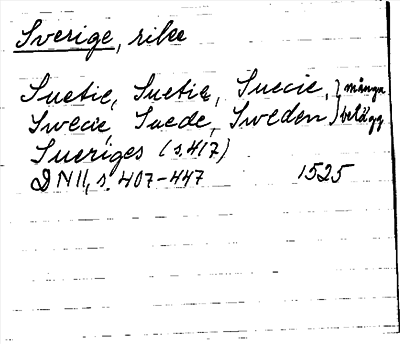 Sverige, rike
Suetie, Suetia, Suecie, } många
Swecie, Suede, Sweden } belägg
Sueriges (s. 417)
DN II, s. 407-447 1525